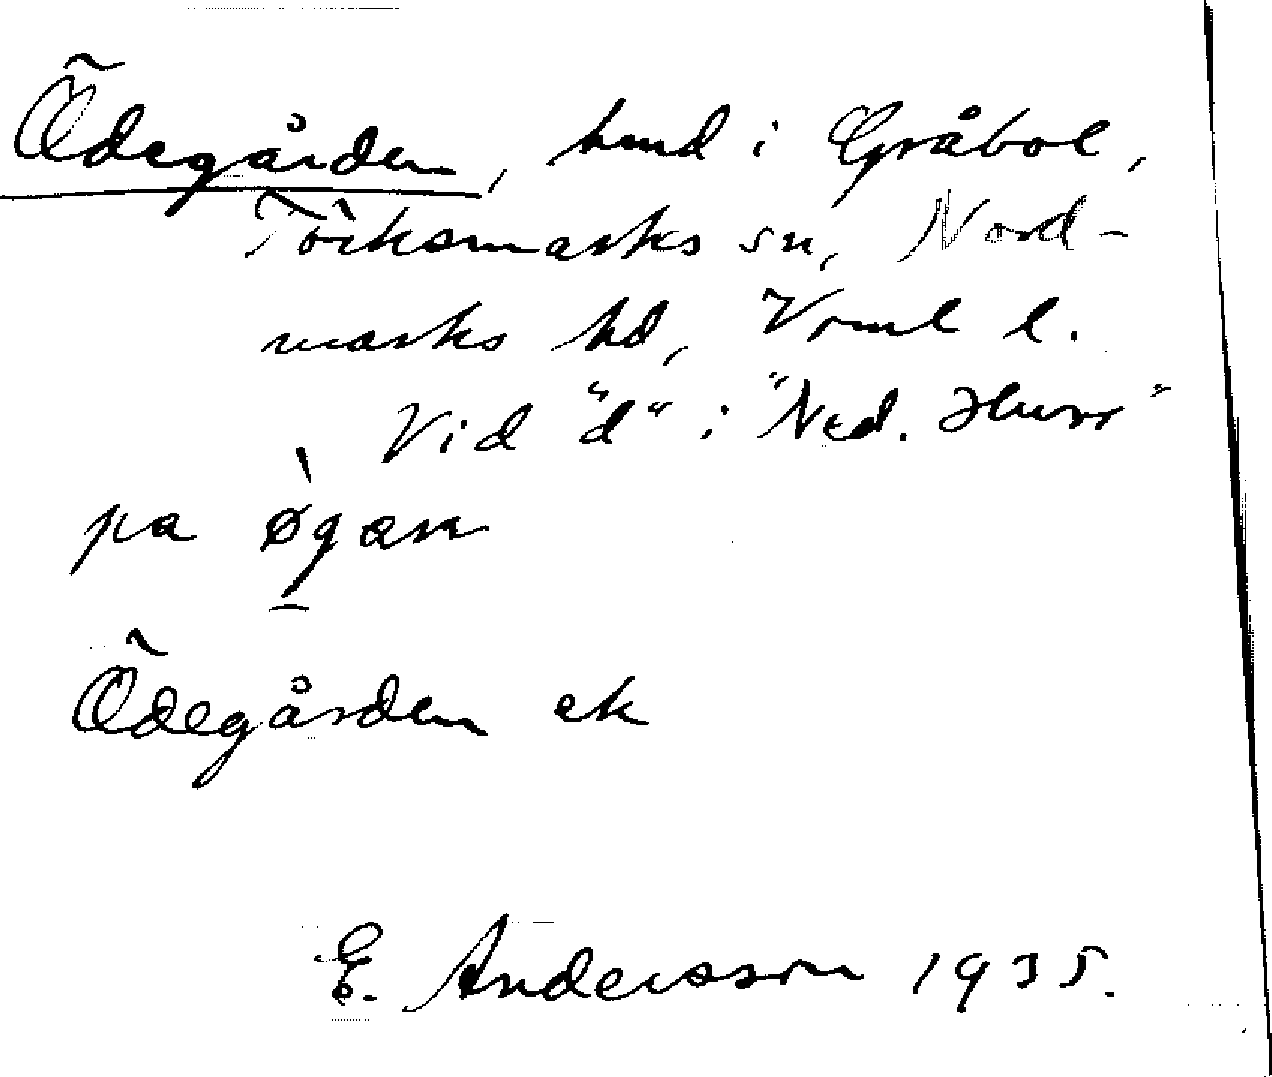 Ödegården, hmd i Gråbol,
Töcksmarks sn, Nord-
marks hd, Vrml l.
Vid "d" i "Ned. Hurr"
pa øgan
Ödegården ek
E. Andersson 1935.